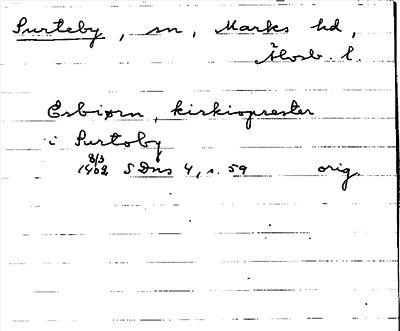 Surteby, sn, Marks hd,
Älvsb. l.
Esbiørn, kirkioprester
i Surtoby
8/3
1402 SDns 4, s. 59 orig.